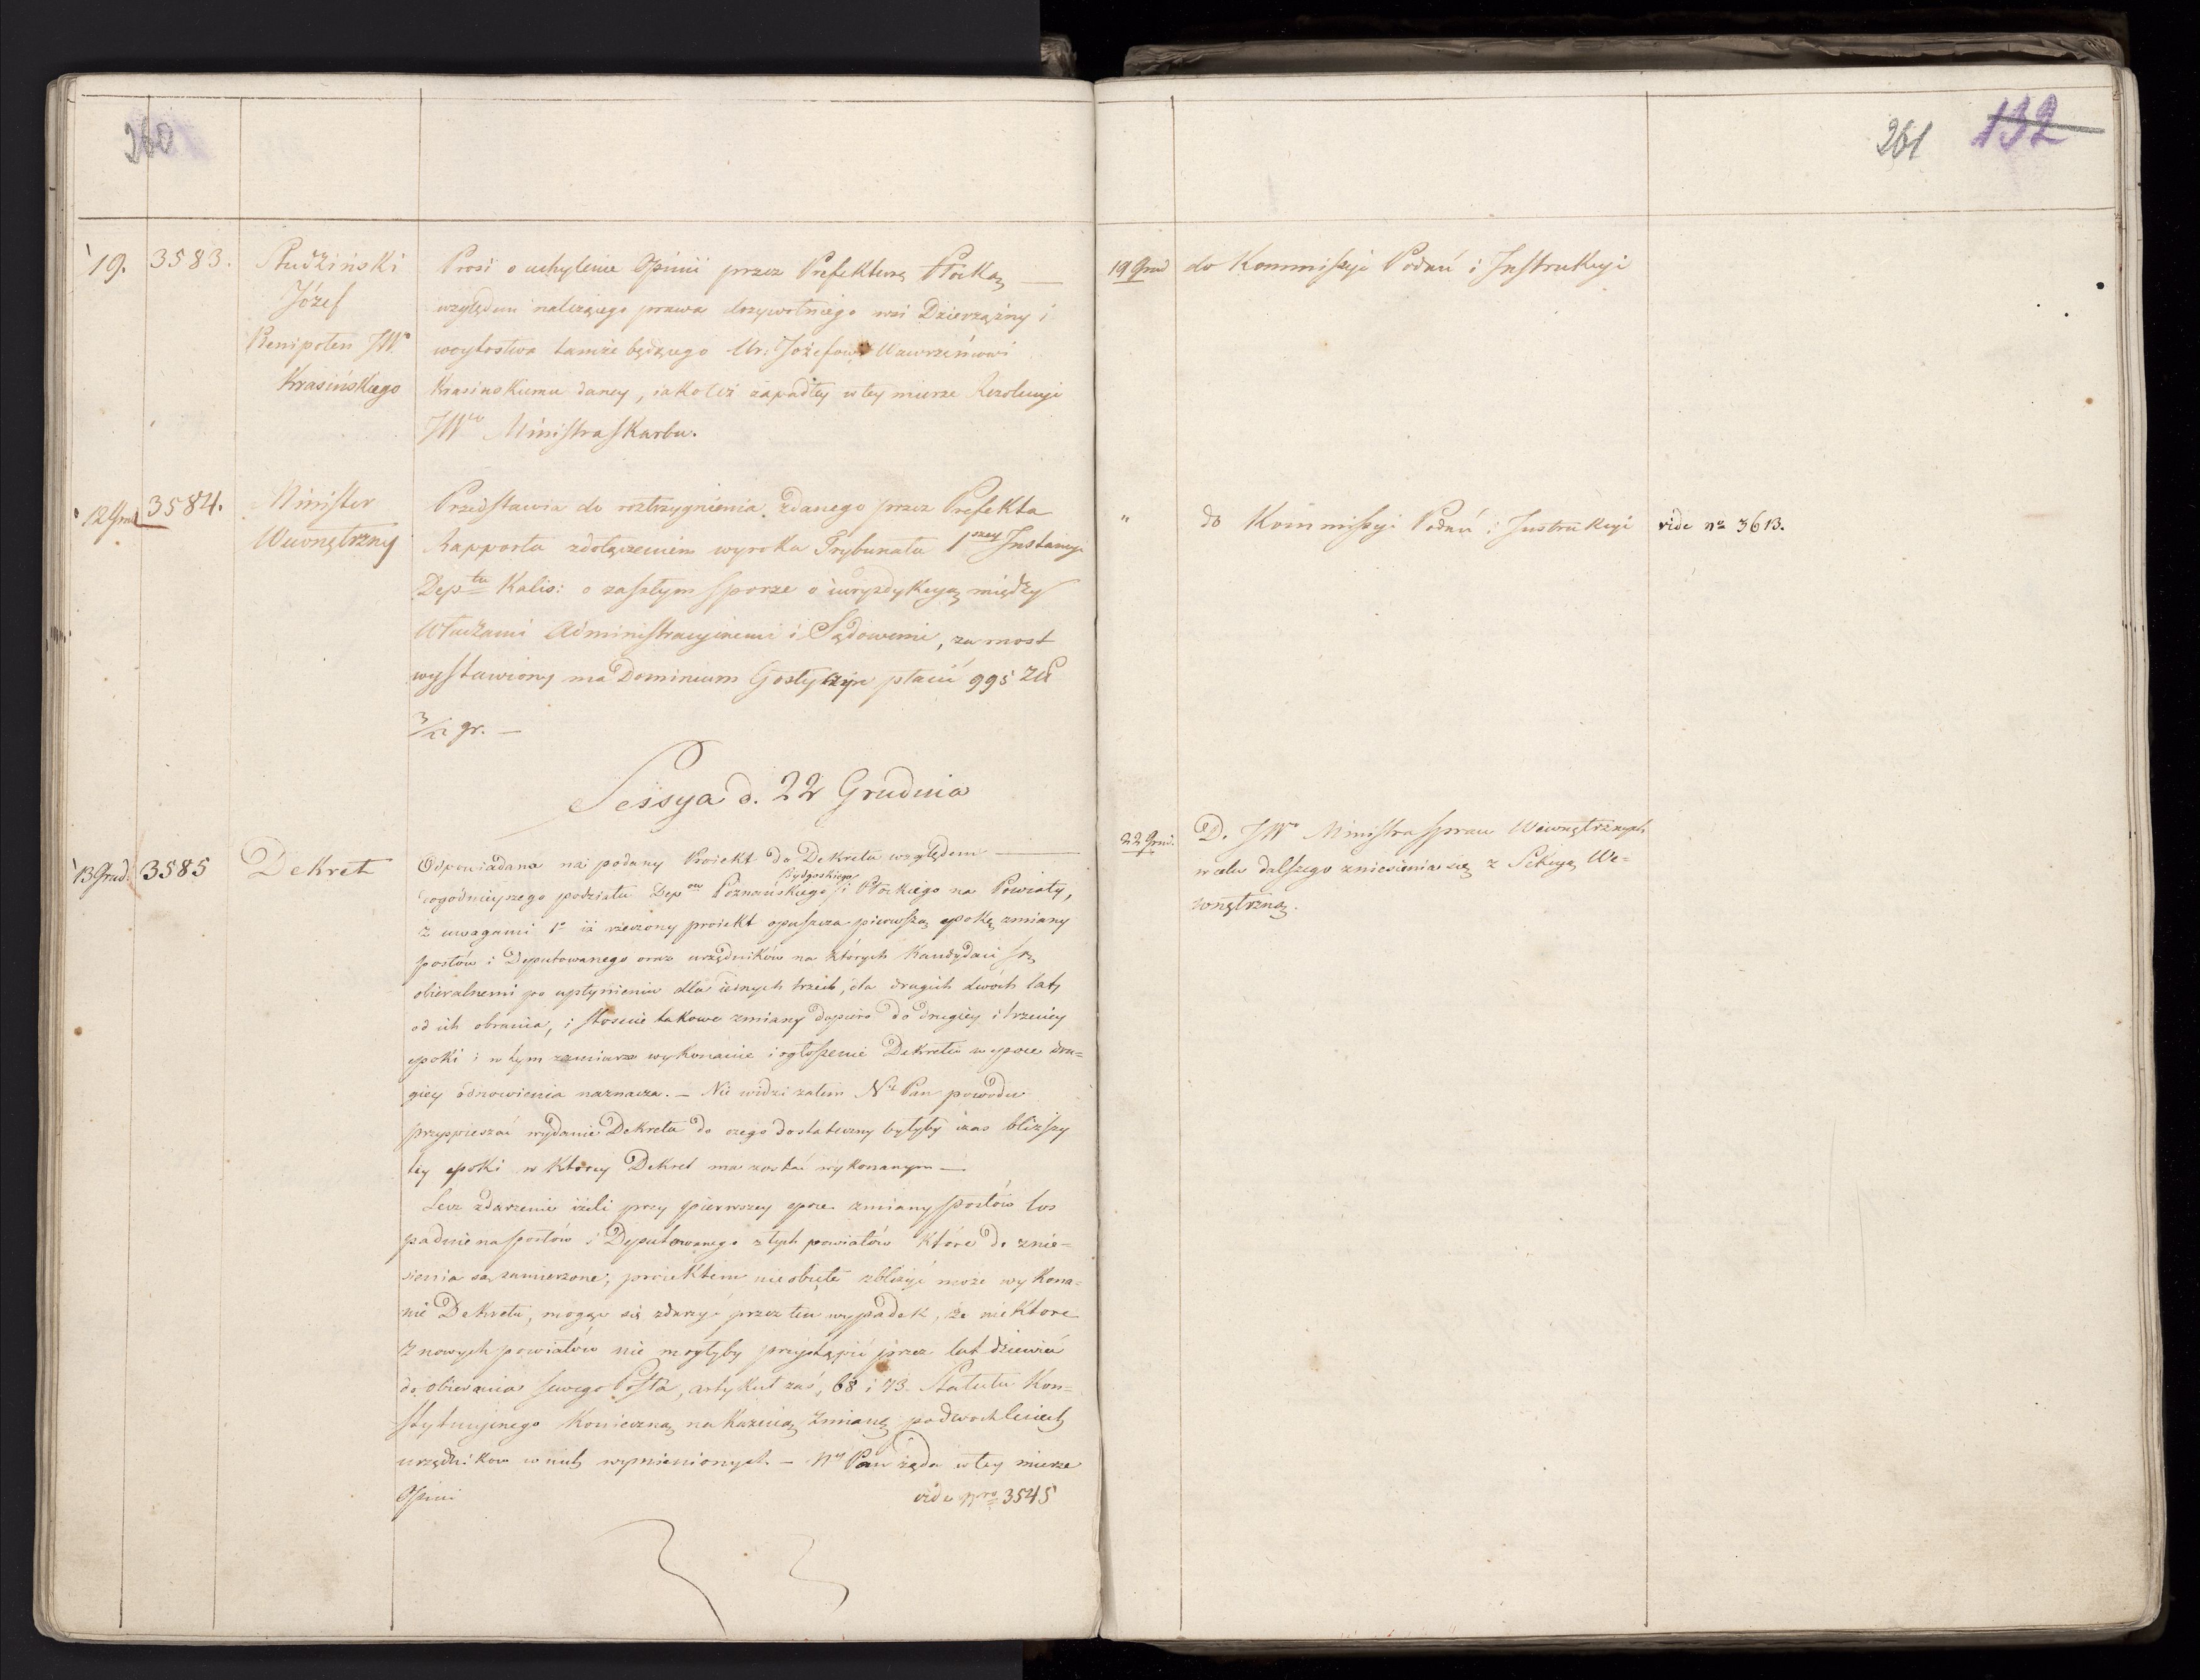 260
19. 3583. Studziński Prosi o uchylenie Opinii przez Prefekturę Płocką —
Józef względem należącego prawa dożywotniego wsi Dzierzązny i
Plenipoten JWo wóytostwa tamże będącego Ur: Jozefowi Wawrzeńcowi
Krasińskiego Krasinskiemu daney, iakoteż zapadłey w tey mierze Rezolucyi
JWgo Ministra Skarbu.
12 Grud 3584. Minister Przedstawia do roztrzygnienia zdanego przez Prefekta
Wewnętrzny Rapportu zdołączeniem wyroku Trybunału 1szey Instancyi
Deptu Kalis: o zaszłym sporze o iuryzdykcyą między
Władzami Administracyinemi i Sądowemi, za most
wystawiony ma Dominium Gostyczyn płacić 995 Zł
gr. —
Sessya d. 22 Grudnia
13 Grud. 3585 Dekret Odpowiadana na podany Proiekt do Dekretu względem —
Bydgoskiego
dogodnieyszego podziału Depów Poznańskiego i Płockiego na Powiaty,
z uwagami 1o iż rzeczony proiekt opuszcza pierwszą epokę zmiany
posłów i Deputowanego oraz urzędników na których Kandydaci są
obieralnemi po upłynieniu dla iednych trzech, dla drugich dwóch lat,
od ich obrania, i stosuie takowe zmiany dopiero do drugiey i trzeciey
epoki i w tym zamiarze wykonanie i ogłoszenie Dekretu w epoce dru=
giey odnowienia naznacza. — Nie widzi zatem Nt Pan powodu
przyspieszać wydanie Dekretu do czego dostateczny byłyby czas bliższy
tey epoki w ktorey Dekret ma zostać wykonanym —
Lecz zdarzenie ieżeli przy pierwszey epoce zmiany posłów los
padnie na posłów i Deputowanego z tych powiatów które do znie=
sienia są zamierzone, proiektem nieobięte zbliżyć może wykona=
nie Dekretu, mogąc się zdarzyć przez ten wypadek, że niektore
z nowych powiatów nie mogłyby przystąpić przez lat dziewięć
do obierania swego Posła, artykuł zaś, 68 i 73. Statutu Kon=
stytucyinego Konieczną nakazuią zmianę po dwoch leciech
urzędnikow w nich wymienionych. — Ny Pan żąda w tey mierze
Opinii vide Nro 3545
261 132
19 Grud do Kommissyi Podań i Instrukcyi
" do Kommissyi Podań i Instrukcyi vide no 3613.
22 Grud. D. JWo Ministra spraw Wewnętrznych
w celu dalszego zniesienia się z Sekcyą We=
wnętrzną.